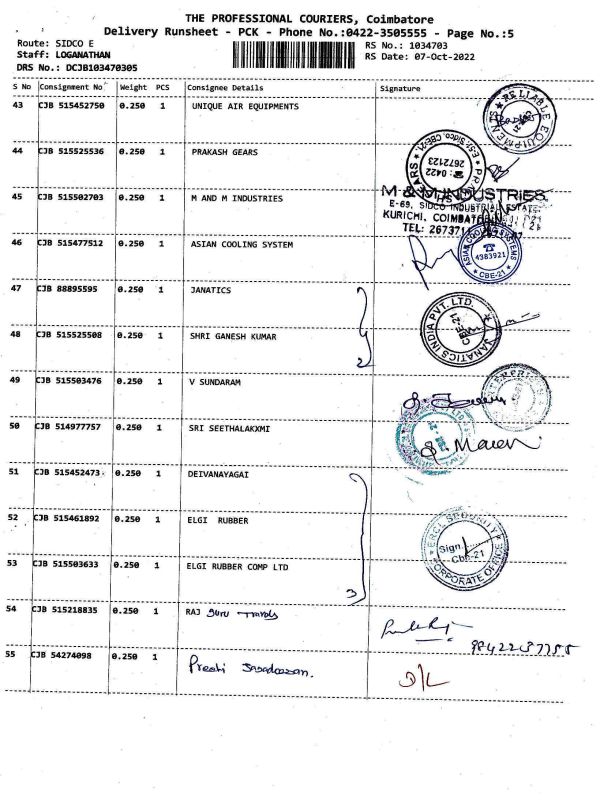 THE PROFESSIONAL COURIERS, Coimbatore
Delivery Runsheet - PCK - Phone No.:0422-3505555 - Page No.:5
Route: SIDCO E
RS No.: 1034703
Staff: LOGANATHAN
RS Date: 07-Oct-2022
DRS No.: DCJB103470305
S No Consignment No Weight PCS Consignee Details Signature
43 CJB 515452750 0.250 1 UNIQUE AIR EQUIPMENTS
RELIABLE EQUIPMENTS
44 CJB 515525536 0.250 1 PRAKASH GEARS
ESI, Sidco, CBE-21.
☎: 0422
2672123
45 CJB 515502703 0.250 1 M AND M INDUSTRIES
M & M INDUSTRIES
E-69, SIDCO INDUSTRIAL ESTATE
KURICHI, COIMBATORE
TEL: 267371
46 CJB 515477512 0.250 1 ASIAN COOLING SYSTEM
ASIAN COOLING SYSTEMS
☎ 4383921
CBE-21
47 CJB 88895595 0.250 1 JANATICS
JANATICS INDIA PVT. LTD.
CBE-21
48 CJB 515525508 0.250 1 SHRI GANESH KUMAR
2
49 CJB 515503476 0.250 1 V SUNDARAM
50 CJB 514977757 0.250 1 SRI SEETHALAKXMI
51 CJB 515452473 0.250 1 DEIVANAYAGAI
52 CJB 515461892 0.250 1 ELGI RUBBER
ERCL SECURITY
Sign.
Cbe-21
CORPORATE OFFICE
53 CJB 515503633 0.250 1 ELGI RUBBER COMP LTD
3
54 CJB 515218835 0.250 1 RAJ Guru Travels
55 CJB 54274098 0.250 1 Preethi
D/L